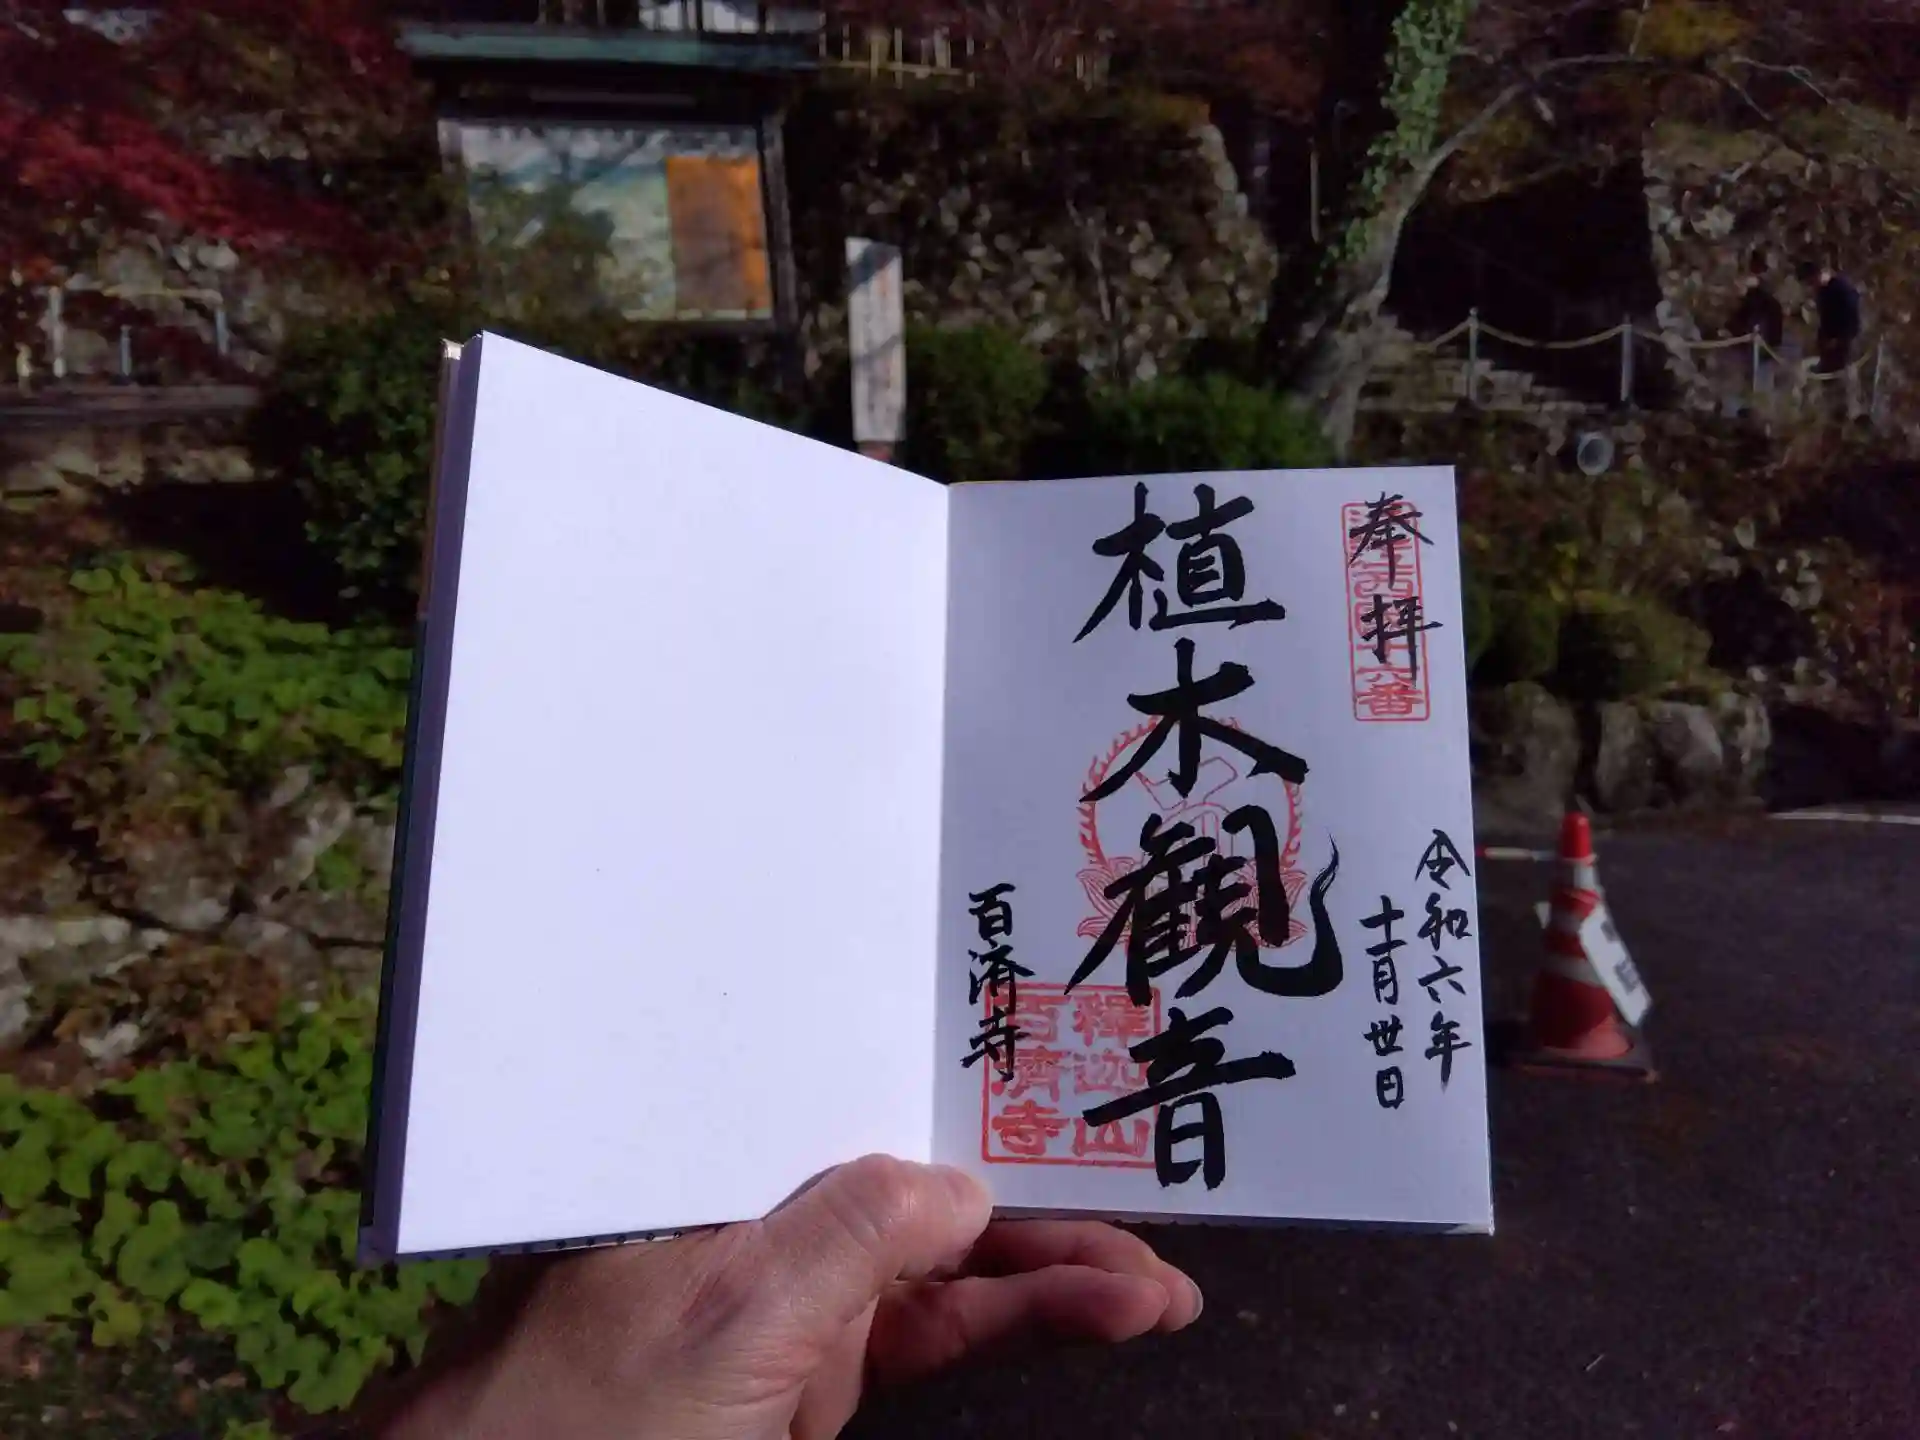 奉拝
令和六年
十一月丗日
植木観音
百済寺
釋迦山
百濟寺